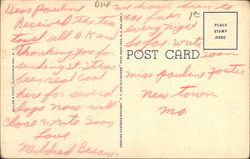 Dear Pauline
Received the tea
towel all O.K. and
thanking you for
sending it. It has
been real cool
here for several
days now will
close write soon
Love
Mildred
our
we have been to
every night
so far. write
soon.
POST CARD
PLACE
STAMP
HERE
1¢
Miss Pauline Foster
New town
Mo.